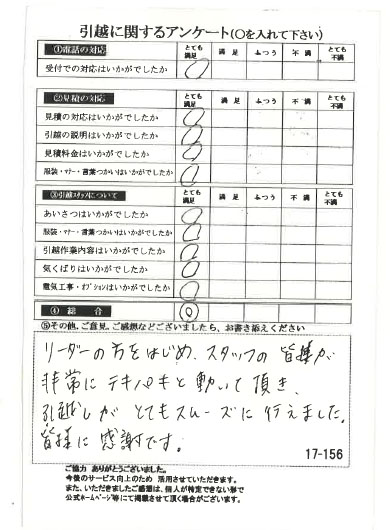 引越に関するアンケート(〇を入れて下さい)
①電話の対応 とても満足 満足 ふつう 不満 とても不満
受付での対応はいかがでしたか
②見積の対応 とても満足 満足 ふつう 不満 とても不満
見積の対応はいかがでしたか
引越の説明はいかがでしたか
見積料金はいかがでしたか
服装・マナー・言葉つかいはいかがでしたか
③引越スタッフについて とても満足 満足 ふつう 不満 とても不満
あいさつはいかがでしたか
服装・マナー・言葉つかいはいかがでしたか
引越作業内容はいかがでしたか
気くばりはいかがでしたか
電気工事・オプションはいかがでしたか
④ 総 合
⑤その他、ご意見、ご感想などございましたら、お書き添えください
リーダーの方をはじめ、スタッフの皆様が
非常にテキパキと動いて頂き、
引越しがとてもスムーズに行えました。
皆様に感謝です。
17-156
ご協力 ありがとうございました。
今後のサービス向上のため 活用させていただきます。
また、いただきましたご感想は、個人が特定できない形で
公式ホームページ等にて掲載させて頂く場合がございます。